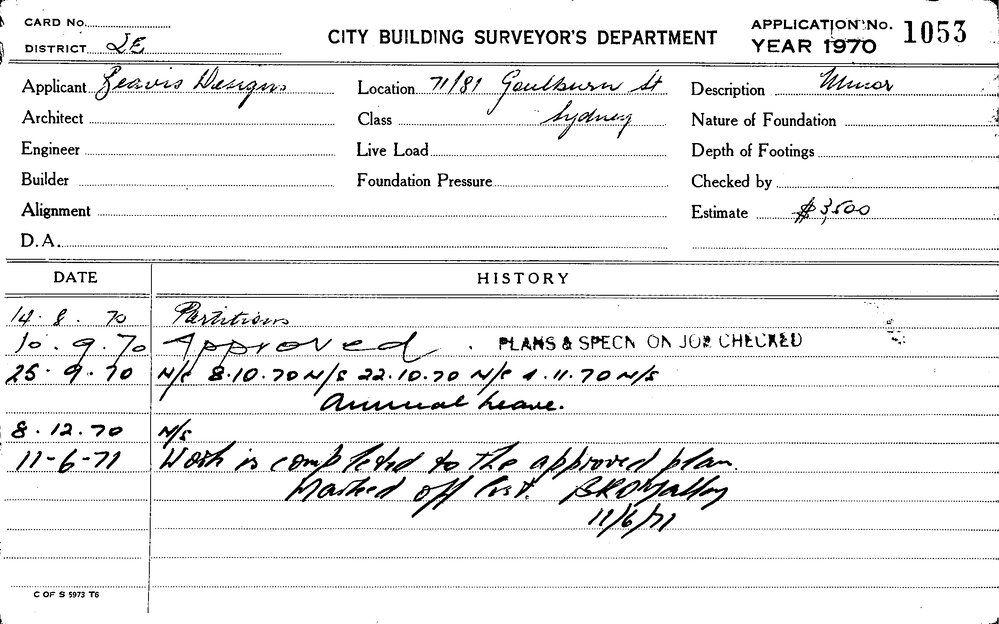 CARD No.
DISTRICT
CITY BUILDING SURVEYOR'S DEPARTMENT
APPLICATION No. 1053
YEAR 1970
Applicant Designs
Location 71/81 Goulburn St
Description Minor
Architect
Class Sydney
Nature of Foundation
Engineer
Live Load
Depth of Footings
Builder
Foundation Pressure
Checked by
Alignment
Estimate $3,500
D.A.
DATE HISTORY
14.8.70 Partitions
10.9.70 Approved. PLANS & SPECN ON JOB CHECKED
25.9.70 N/S 8.10.70 N/S 22.10.70 N/S 4.11.70 N/S
Annual Leave.
8.12.70 N/S
11-6-71 Work is completed to the approved plan.
Marked off List.
11/6/71
C OF S 5973 T6